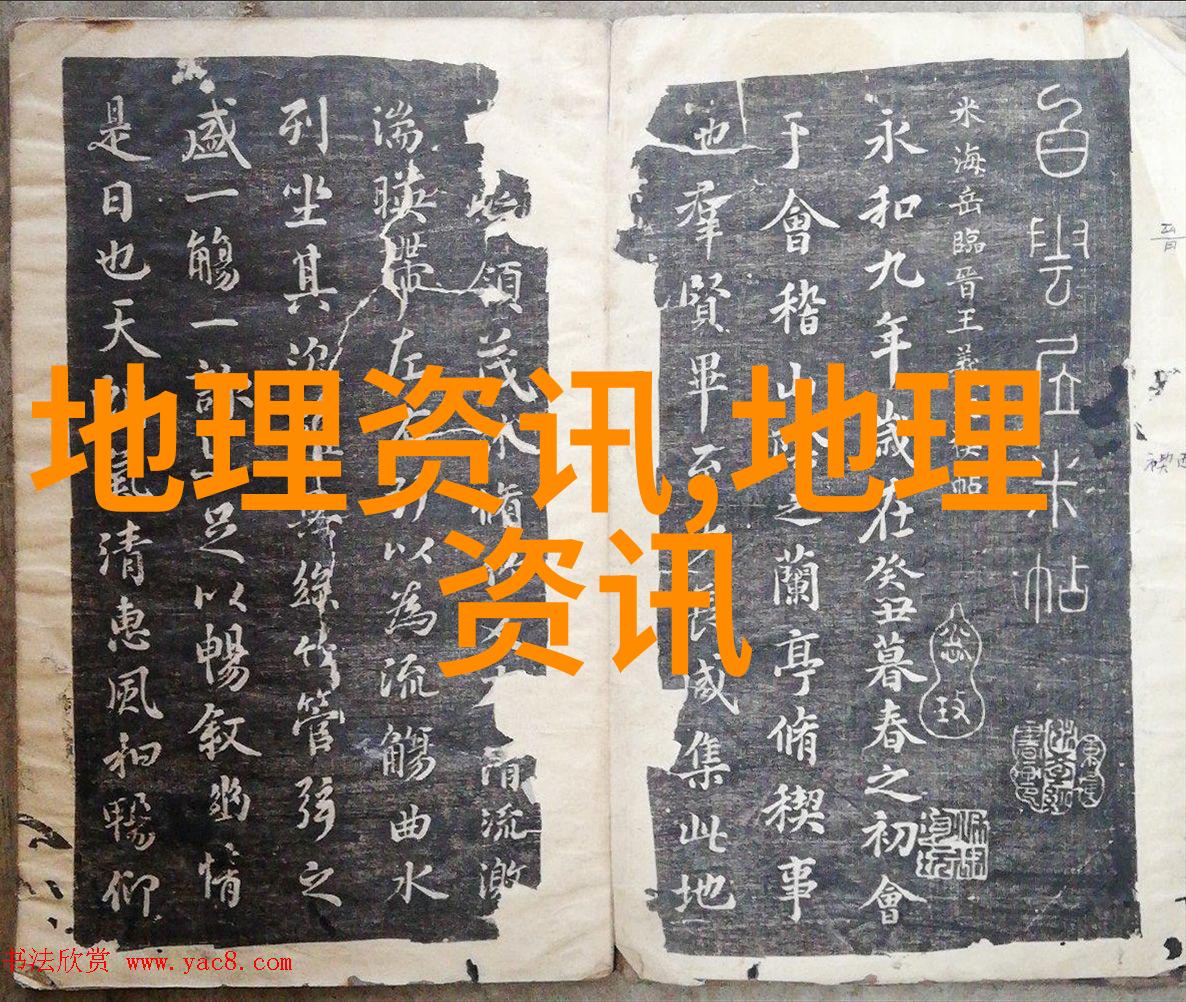 地理资讯,地理
资讯
白雲居米帖
米海岳臨晉王羲帖
永和九年歲在癸丑暮春之初會
于會稽山之蘭亭脩稧事
也羣賢畢至長咸集此地
領茂脩清流激
湍暎帶左右引以為流觴曲水
列坐其次無絲竹管弦之
盛一觴一詠足以暢叙幽情
是日也天氣清惠風和暢仰
书法欣赏 www.yac8.com